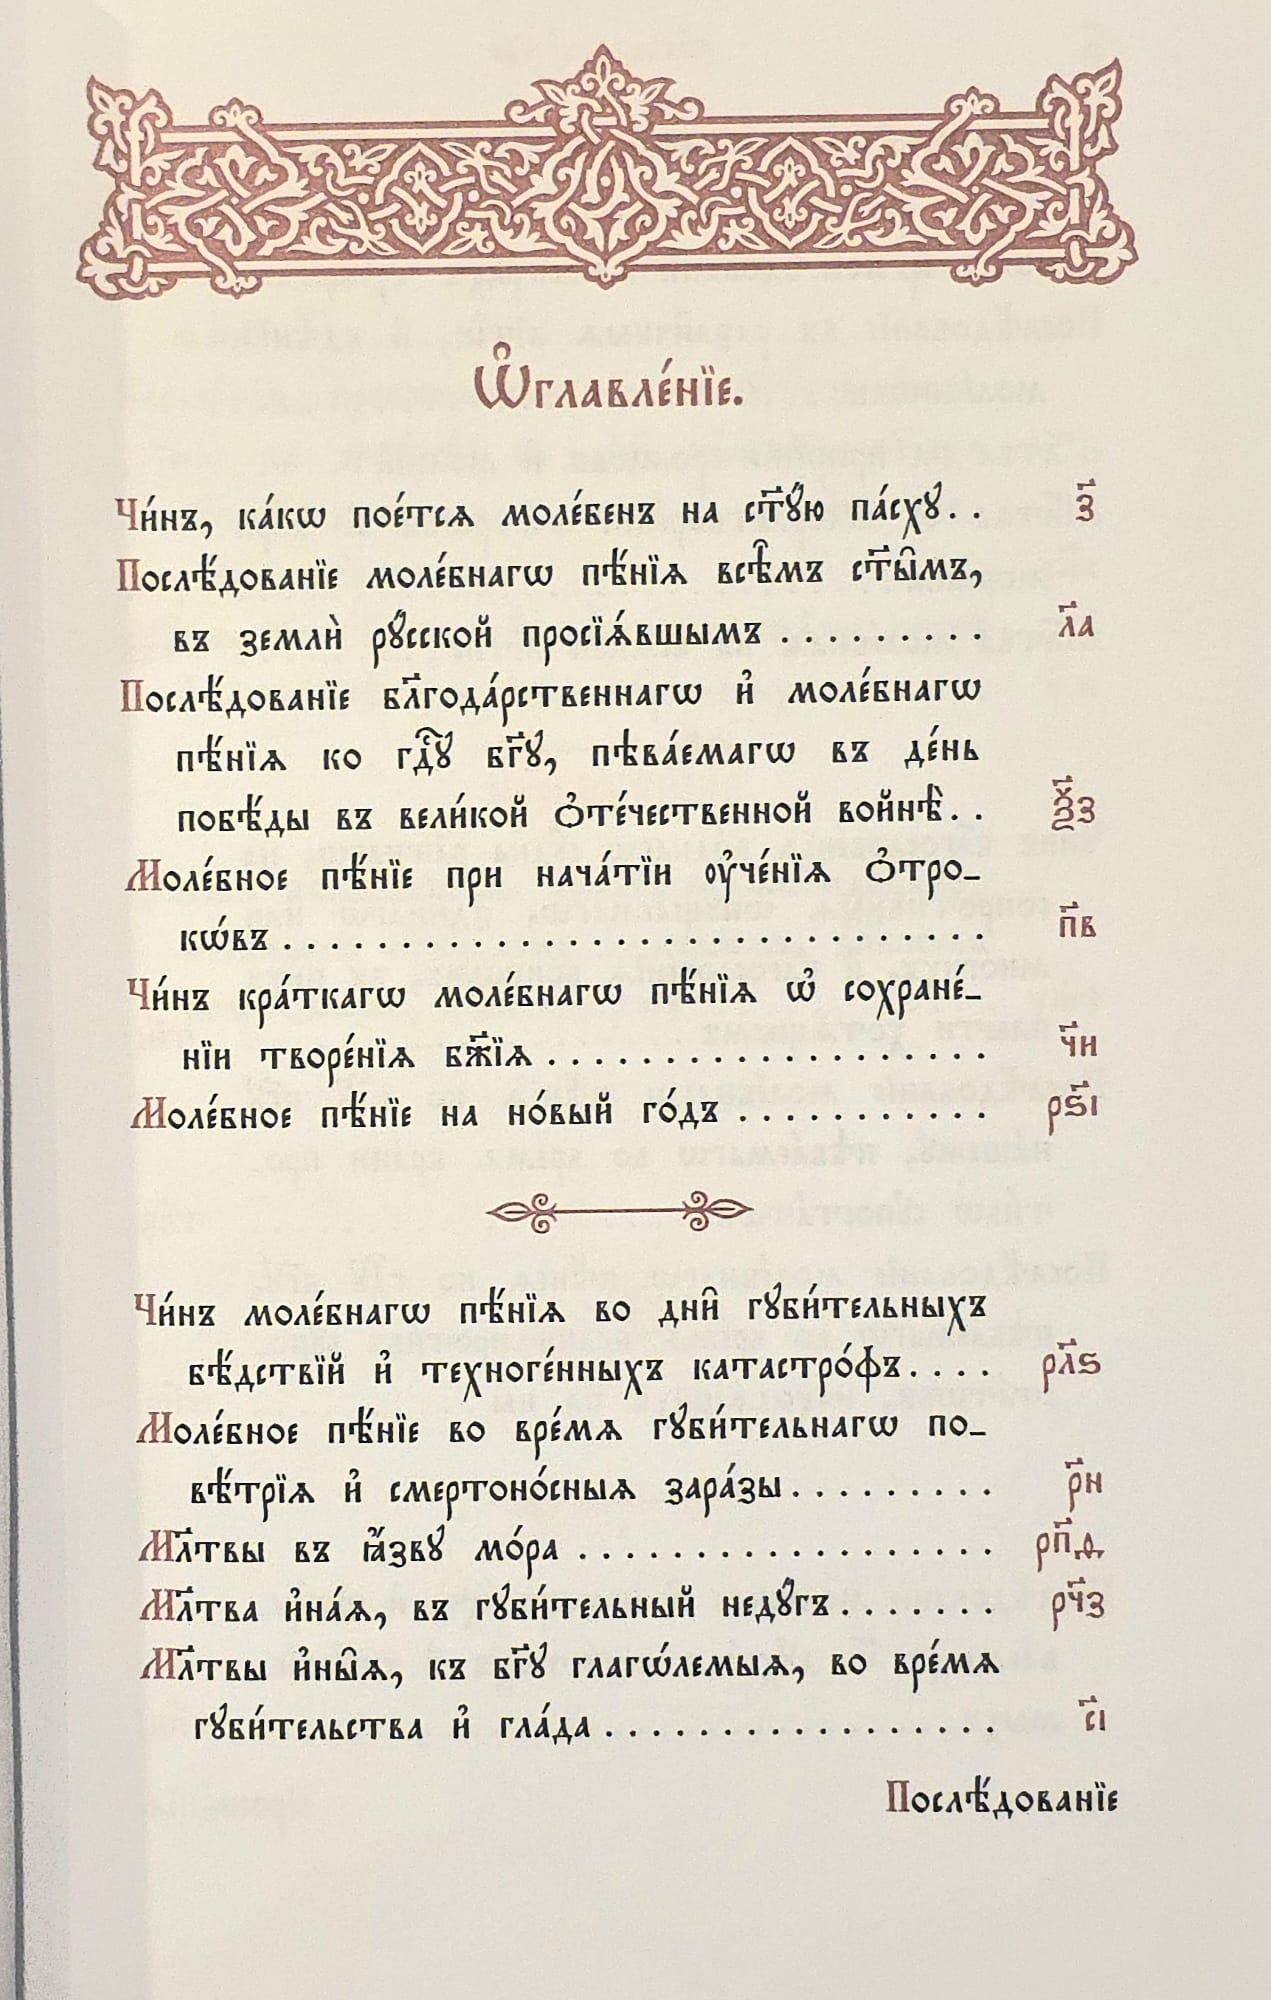 Ѡ҆главле́нїе.
Чи́нъ, ка́кѡ пое́тсѧ моле́бенъ на ст҃ꙋ́ю па́схꙋ.. з҃
Послѣ́дованїе моле́бнагѡ пѣ́нїѧ всѣ̑мъ ст҃ы̑мъ,
въ землѝ рꙋ́сской просїѧ́вшымъ ......... л҃а
Послѣ́дованїе бл҃года́рственнагѡ и҆ моле́бнагѡ
пѣ́нїѧ ко гдⷭ҇ꙋ бг҃ꙋ, пѣва́емагѡ въ де́нь
побѣ́ды въ вели́кой ѻ҆те́чественной войнѣ̀.. ѯ҃з
Моле́бное пѣ́нїе при нача́тїи ᲂу҆че́нїѧ ѻ҆́тро_
кѡ́въ ............................. п҃в
Чи́нъ кра́ткагѡ моле́бнагѡ пѣ́нїѧ ѡ҆ сохране́_
нїи творе́нїѧ бж҃їѧ .................. ч҃и
Моле́бное пѣ́нїе на но́вый го́дъ ........... рѕ҃і
Чи́нъ моле́бнагѡ пѣ́нїѧ во дни̑ гꙋби́тельныхъ
бѣ́дствїй и҆ техноге́нныхъ катастро́фъ.... рл҃ѕ
Моле́бное пѣ́нїе во вре́мѧ гꙋби́тельнагѡ по_
вѣ́трїѧ и҆ смертоно́сныѧ зара́зы......... р҃н
Мл҃твы въ ꙗ҆́звꙋ мо́ра .................. рп҃д
Мл҃тва и҆на́ѧ, въ гꙋби́тельный недꙋ́гъ....... рч҃з
Мл҃твы и҆ны̑ѧ, къ бг҃ꙋ глагѡ́лемыѧ, во вре́мѧ
гꙋби́тельства и҆ гла́да................. с҃і
Послѣ́дованїе